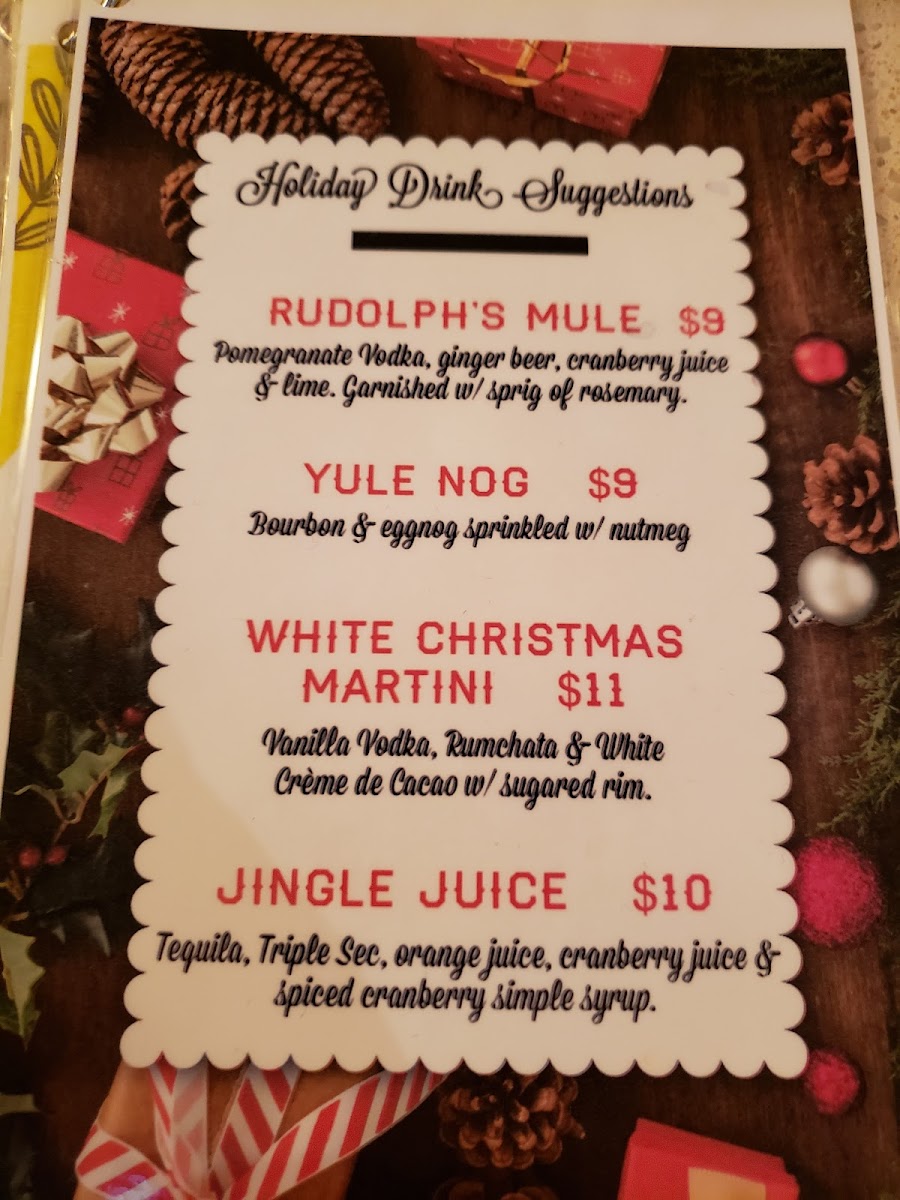 Holiday Drink Suggestions
RUDOLPH'S MULE $9
Pomegranate Vodka, ginger beer, cranberry juice
& lime. Garnished w/ sprig of rosemary.
YULE NOG $9
Bourbon & eggnog sprinkled w/ nutmeg
WHITE CHRISTMAS
MARTINI $11
Vanilla Vodka, Rumchata & White
Crème de Cacao w/ sugared rim.
JINGLE JUICE $10
Tequila, Triple Sec, orange juice, cranberry juice &
spiced cranberry simple syrup.